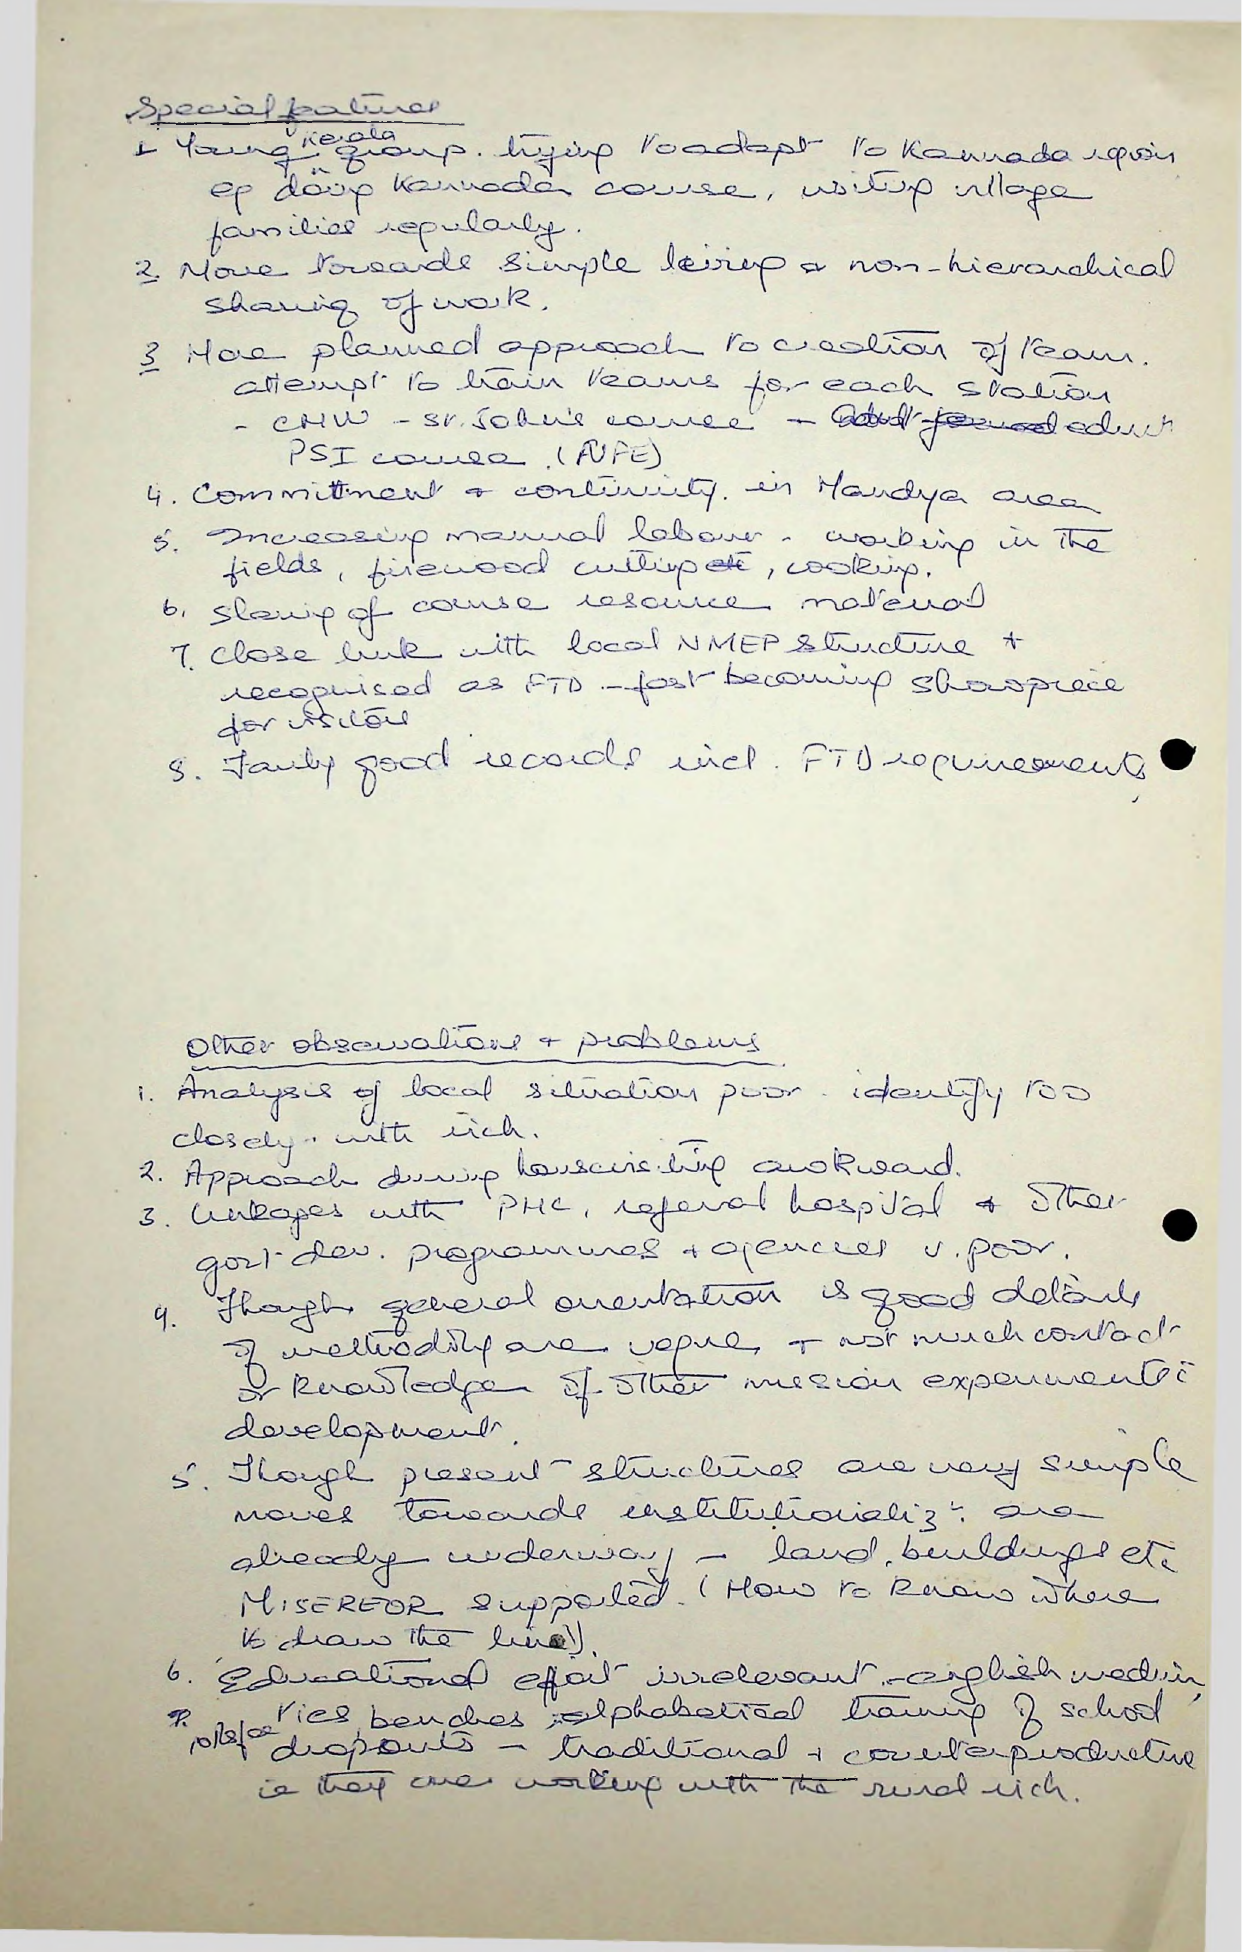 Special features
1 Young Kerala group. trying to adapt to Kannada region
eg doing Kannada course, visiting village
families regularly.
2. Move towards simple living + non-hierarchical
sharing of work.
3 More planned approach to creation of team.
attempt to train teams for each station
- CHW - St. John's course - Adult educ
PSI course (NFE)
4. Committment + continuity. in Mandya area
5. Increasing manual labour - working in the
fields, firewood cutting etc, cooking.
6. Sharing of course resource material
7. Close link with local NMEP structure +
recognised as FTD - fast becoming showpiece
for visitors
8. Fairly good records incl. FTD requirements
Other observations + problems
1. Analysis of local situation poor - identify too
closely with rich.
2. Approach during housevisiting awkward.
3. Linkages with PHC, referral hospital + other
govt dev. programmes + agencies v. poor.
4. Though general orientation is good details
of methodology are vague + not much contact
or knowledge of other mission experiments
development.
5. Though present structures are very simple
moves towards institutionaliz: are
already underway - land, buildings etc
MISEREOR supported. (How to know where
to draw the line).
6. Educational effort irrelevant - english medium,
ries benches, alphabetical training of school
dropouts - traditional + counterproductive
ie they are working with the rural rich.